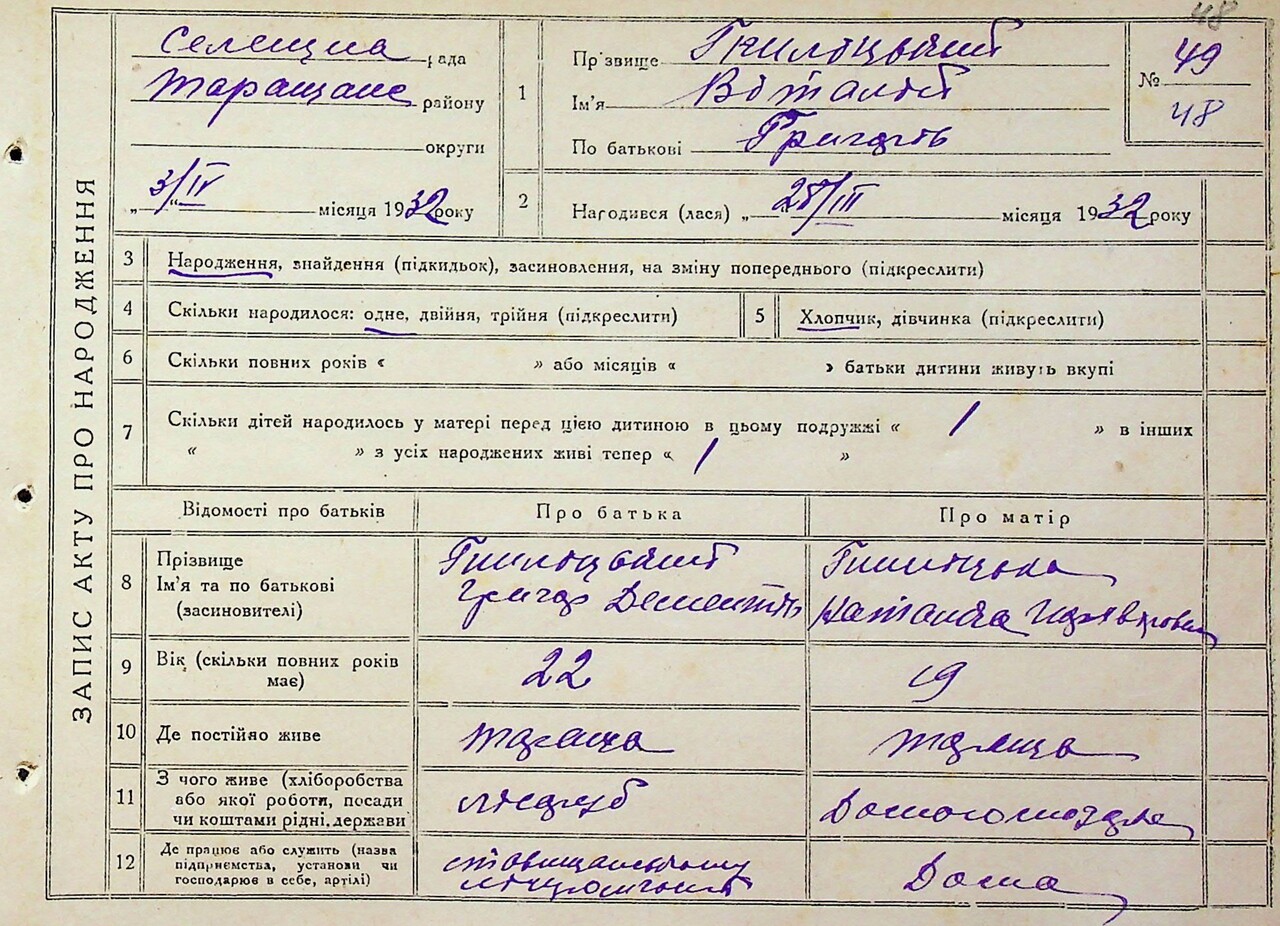 48
Селещна рада
Таращанс району
округи
„3/IV“ місяця 1932 року
1
Пр'звище Гнилоцький
Ім'я Віталій
По батькові Григорів
№ 49
48
2
Народився (лася) „28/III місяця 1932 року
ЗАПИС АКТУ ПРО НАРОДЖЕННЯ
3 Народження, знайдення (підкидьок), засиновлення, на зміну попереднього (підкреслити)
4 Скільки народилося: одне, двійня, трійня (підкреслити) 5 Хлопчик, дівчинка (підкреслити)
6 Скільки повних років « » або місяців « » батьки дитини живуть вкупі
7 Скільки дітей народилось у матері перед цією дитиною в цьому подружжі « 1 » в інших
« » з усіх народжених живі тепер « 1 »
Відомості про батьків Про батька Про матір
8 Прізвище Гнилоцький Гнилоцька
Ім'я та по батькові Григор Дементів Наталка
(засиновителі)
9 Вік (скільки повних років 22 19
має)
10 Де постійно живе Тараща Тараща
11 З чого живе (хліборобства
або якої роботи, посади Домогосподарка
чи коштами рідні, держави
12 Де працює або служить (назва
підприємства, установи чи Дома
господарює в себе, артілі)